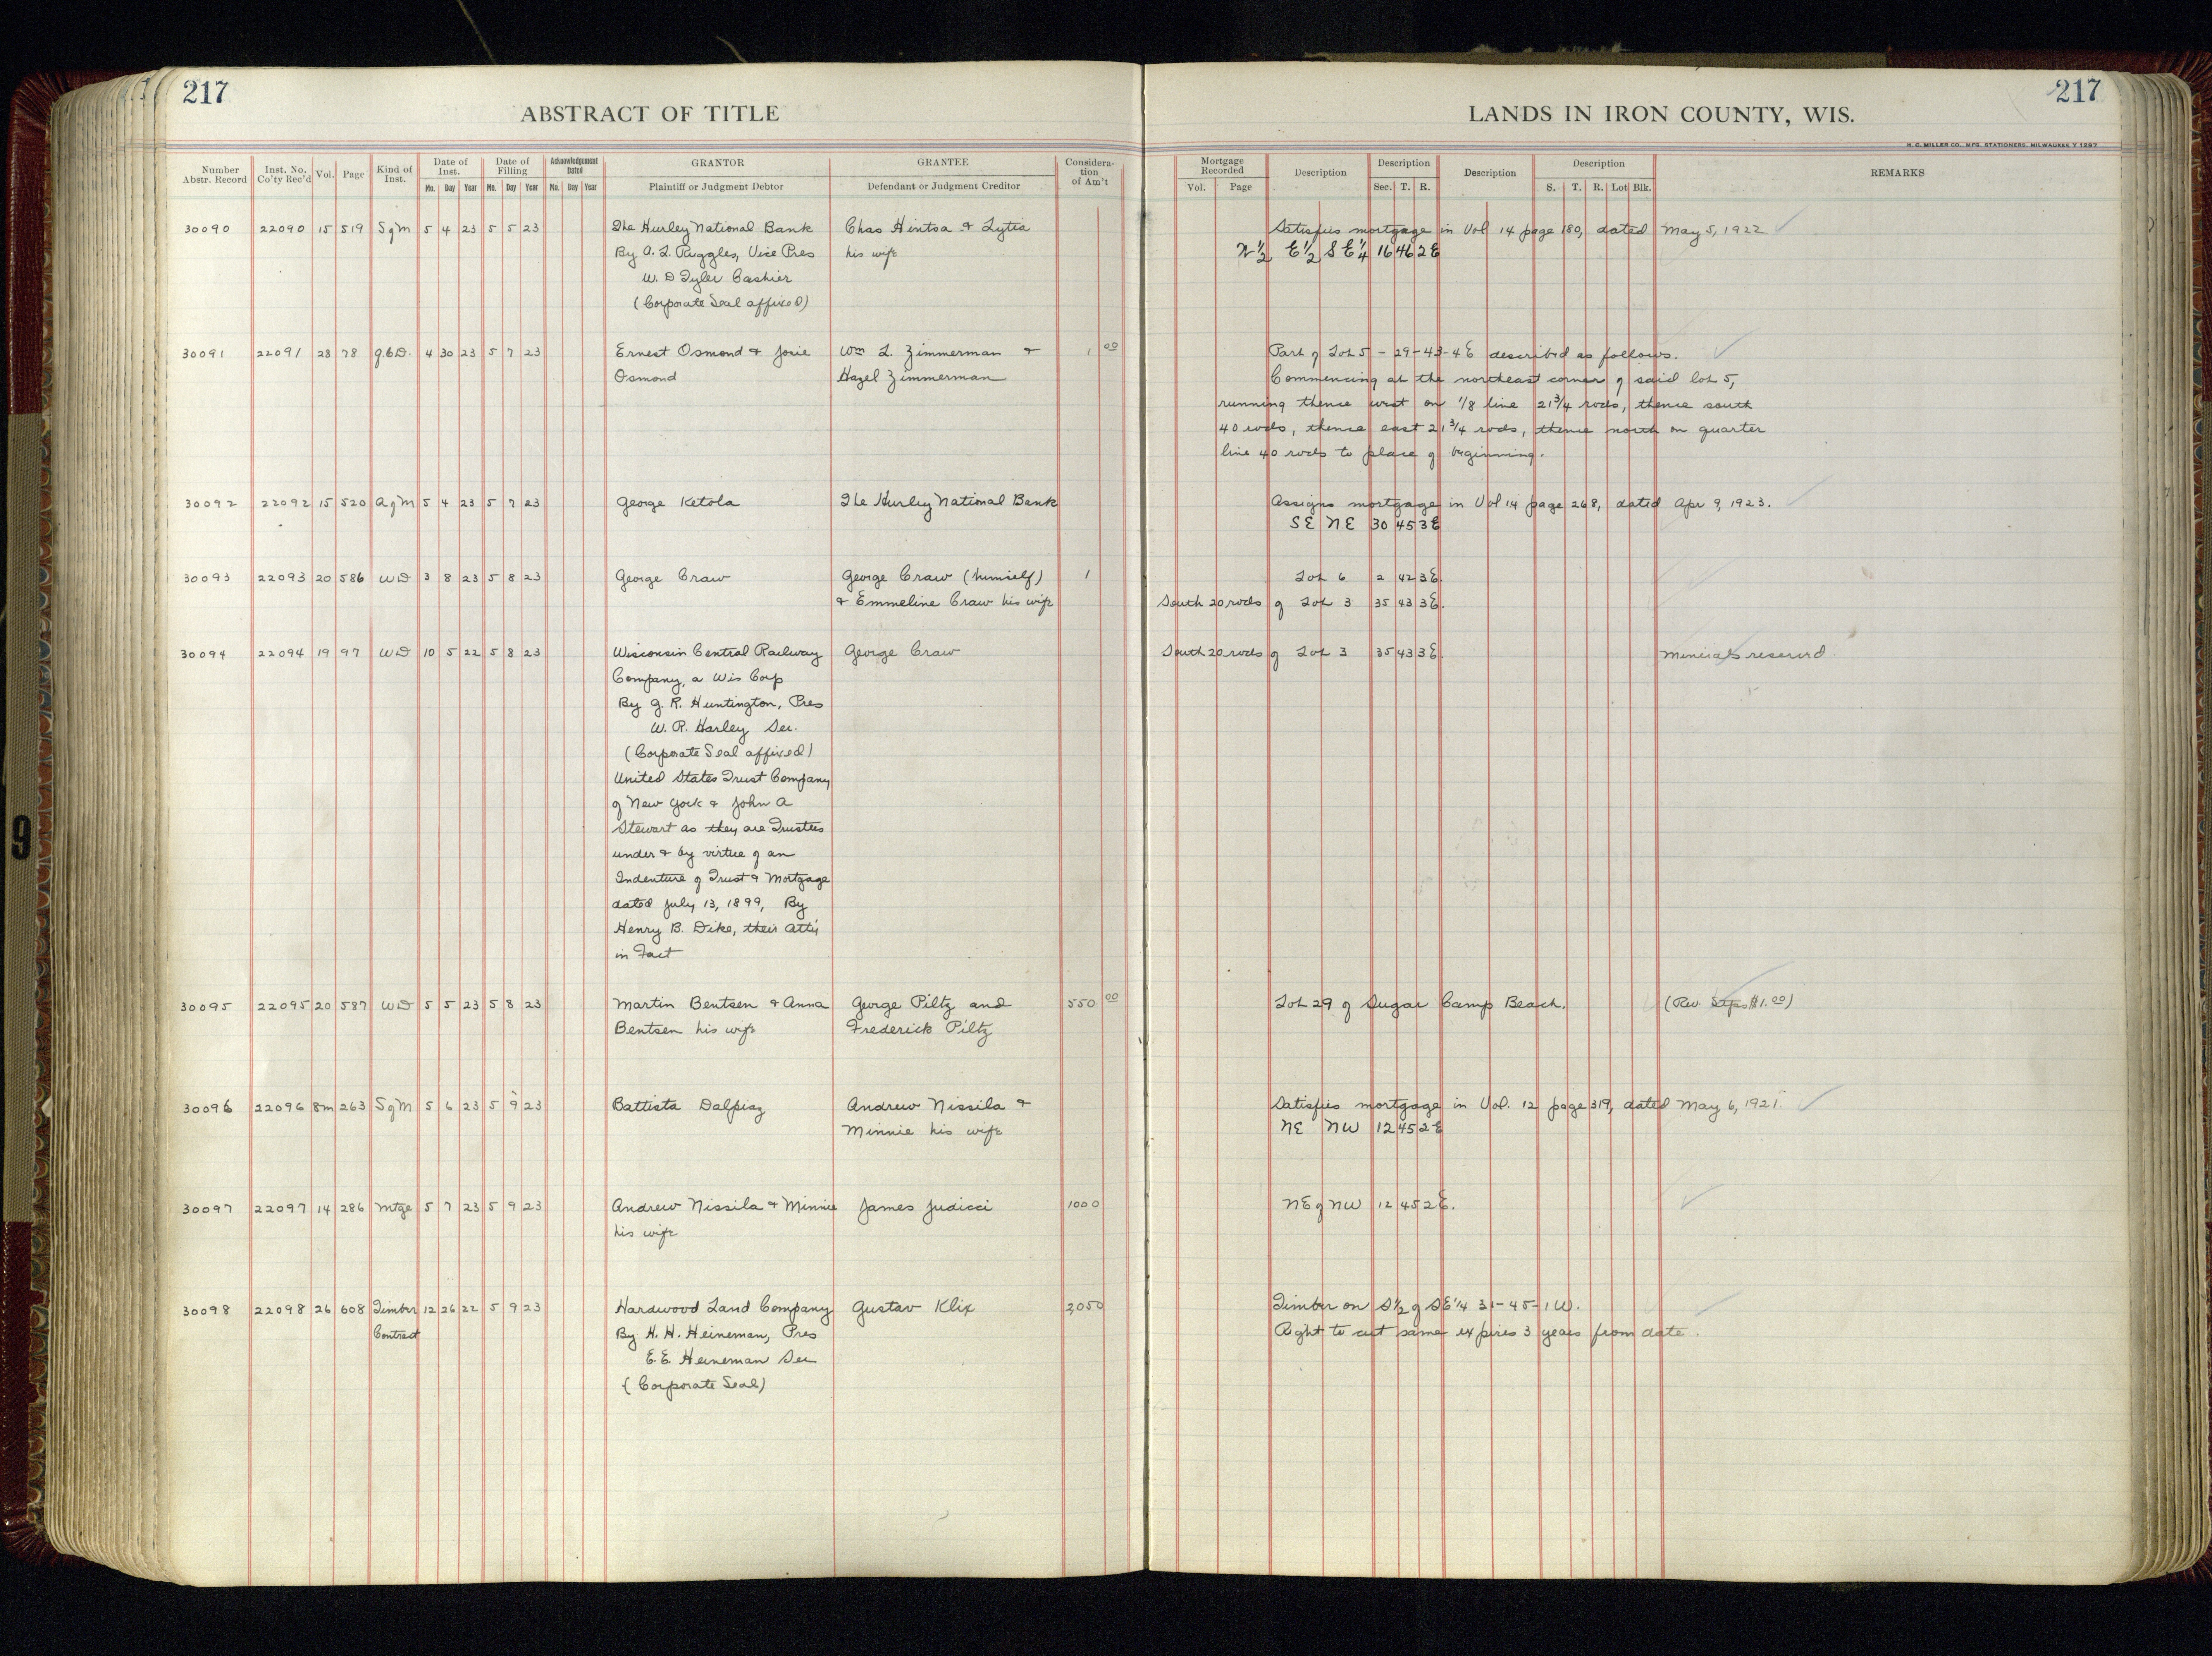 217
ABSTRACT OF TITLE
Number Abstr. Record | Inst. No. Co'ty Rec'd | Vol. | Page | Kind of Inst. | Date of Inst. Mo. Day Year | Date of Filling Mo. Day Year | Acknowledgement Dated Mo. Day Year | GRANTOR Plaintiff or Judgment Debtor | GRANTEE Defendant or Judgment Creditor | Considera-tion of Am't
30090 22090 15 519 S of M 5 4 23 5 5 23 The Hurley National Bank Chas Hintsa & Lytia
By A. L. Ruggles, Vice Pres his wife
W. D Tyler Cashier
(Corporate Seal affixed)
30091 22091 23 78 Q.C.D. 4 30 23 5 7 23 Ernest Osmond & Josie Wm L. Zimmerman & 1 00
Osmond Hazel Zimmerman
30092 22092 15 520 A of M 5 4 23 5 7 23 George Ketola The Hurley National Bank
30093 22093 20 586 WD 3 8 23 5 8 23 George Craw George Craw (himself) 1
& Emmeline Craw his wife
30094 22094 19 97 WD 10 5 22 5 8 23 Wisconsin Central Railway George Craw
Company, a Wis Corp
By G. R. Huntington, Pres
W. R. Harley Sec.
(Corporate Seal affixed)
United States Trust Company
of New York & John A
Stewart as they are Trustees
under & by virtue of an
Indenture of Trust & Mortgage
dated July 13, 1899, By
Henry B. Dike, their Atty
in Fact
30095 22095 20 587 WD 5 5 23 5 8 23 Martin Bentsen & Anna George Piltz and 550 00
Bentsen his wife Frederick Piltz
30096 22096 8m 263 S of M 5 6 23 5 9 23 Battista Dalpiaz Andrew Nissila &
Minnie his wife
30097 22097 14 286 Mtge 5 7 23 5 9 23 Andrew Nissila & Minnie James Judicci 1000
his wife
30098 22098 26 608 Timber 12 26 22 5 9 23 Hardwood Land Company Gustav Klix 2,050
Contract By H. H. Heineman, Pres
E. E. Heineman Sec
(Corporate Seal)
217
LANDS IN IRON COUNTY, WIS.
H. C. MILLER CO., MFG. STATIONERS, MILWAUKEE Y 1297
Mortgage Recorded Vol. Page | Description | Description Sec. T. R. | Description | Description S. T. R. Lot Blk. | REMARKS
Satisfies mortgage in Vol 14 page 180, dated May 5, 1922
N 1/2 E 1/2 S E 1/4 16 46 2 E
Part of Lot 5 - 29-43-4E described as follows.
Commencing at the northeast corner of said lot 5,
running thence west on 1/8 line 21 3/4 rods, thence south
40 rods, thence east 21 3/4 rods, thence north on quarter
line 40 rods to place of beginning.
Assigns mortgage in Vol 14 page 268, dated Apr 9, 1923.
SE NE 30 45 3E
Lot 6 2 42 3E.
South 20 rods of Lot 3 35 43 3E.
South 20 rods of Lot 3 35 43 3E. Minerals reserved
Lot 29 of Sugar Camp Beach. (Rev. Stps $1.00)
Satisfies mortgage in Vol. 12 page 319, dated May 6, 1921.
NE NW 12 45 2E
NE of NW 12 45 2E.
Timber on S 1/2 of SE 1/4 31-45-1W.
Right to cut same expires 3 years from date.
9